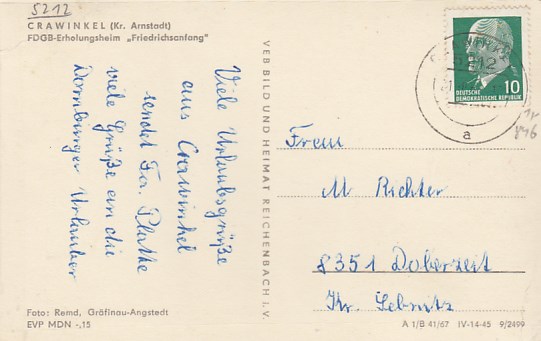 5212
CRAWINKEL (Kr. Arnstadt)
FDGB-Erholungsheim „Friedrichsanfang"
Viele Urlaubsgrüße
aus Crawinkel
sendet Fa. Plathe
viele Grüße an die
Dornburger Urlauber
VEB BILD UND HEIMAT REICHENBACH I. V.
DEUTSCHE
DEMOKRATISCHE REPUBLIK
10
a
Frau
M Richter
8351 Doberzeit
Kr. Sebnitz
Foto: Remd, Gräfinau-Angstedt
EVP MDN -,15
A 1/B 41/67 IV-14-45 9/2499